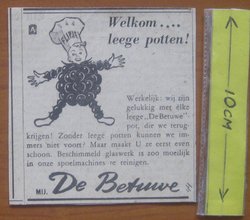 Welkom....
leege potten!
Werkelijk: wij zijn
gelukkig met elke
leege „De Betuwe"-
pot, die we terug-
krijgen! Zonder leege potten kunnen we im-
mers niet voort! Maar maakt U ze eerst even
schoon. Beschimmeld glaswerk is zoo moeilijk
in onze spoelmachines te reinigen.
MIJ. De Betuwe
10CM